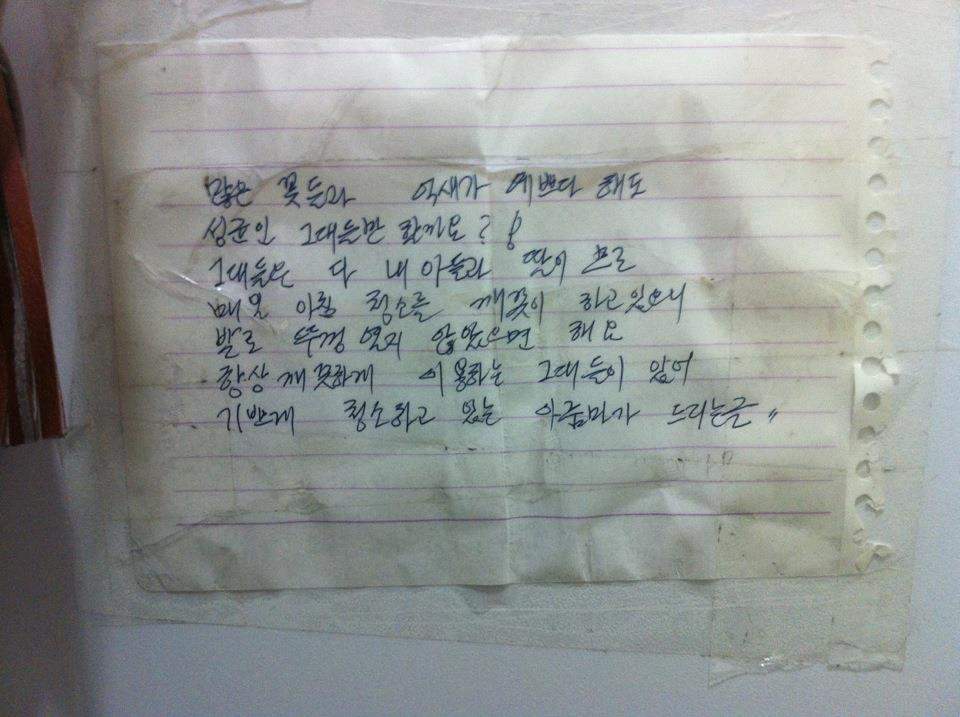 많은 꽃들과 억새가 예쁘다 해도
성균인 그대들만 할까요?!
그대들은 다 내 아들과 딸이 므로
매일 아침 청소를 깨끗이 하고있으니
발로 뚜껑 열지 않았으면 해요
항상 깨끗하게 이용하는 그대들이 있어
기쁘게 청소하고 있는 아줌마가 드리는글〃